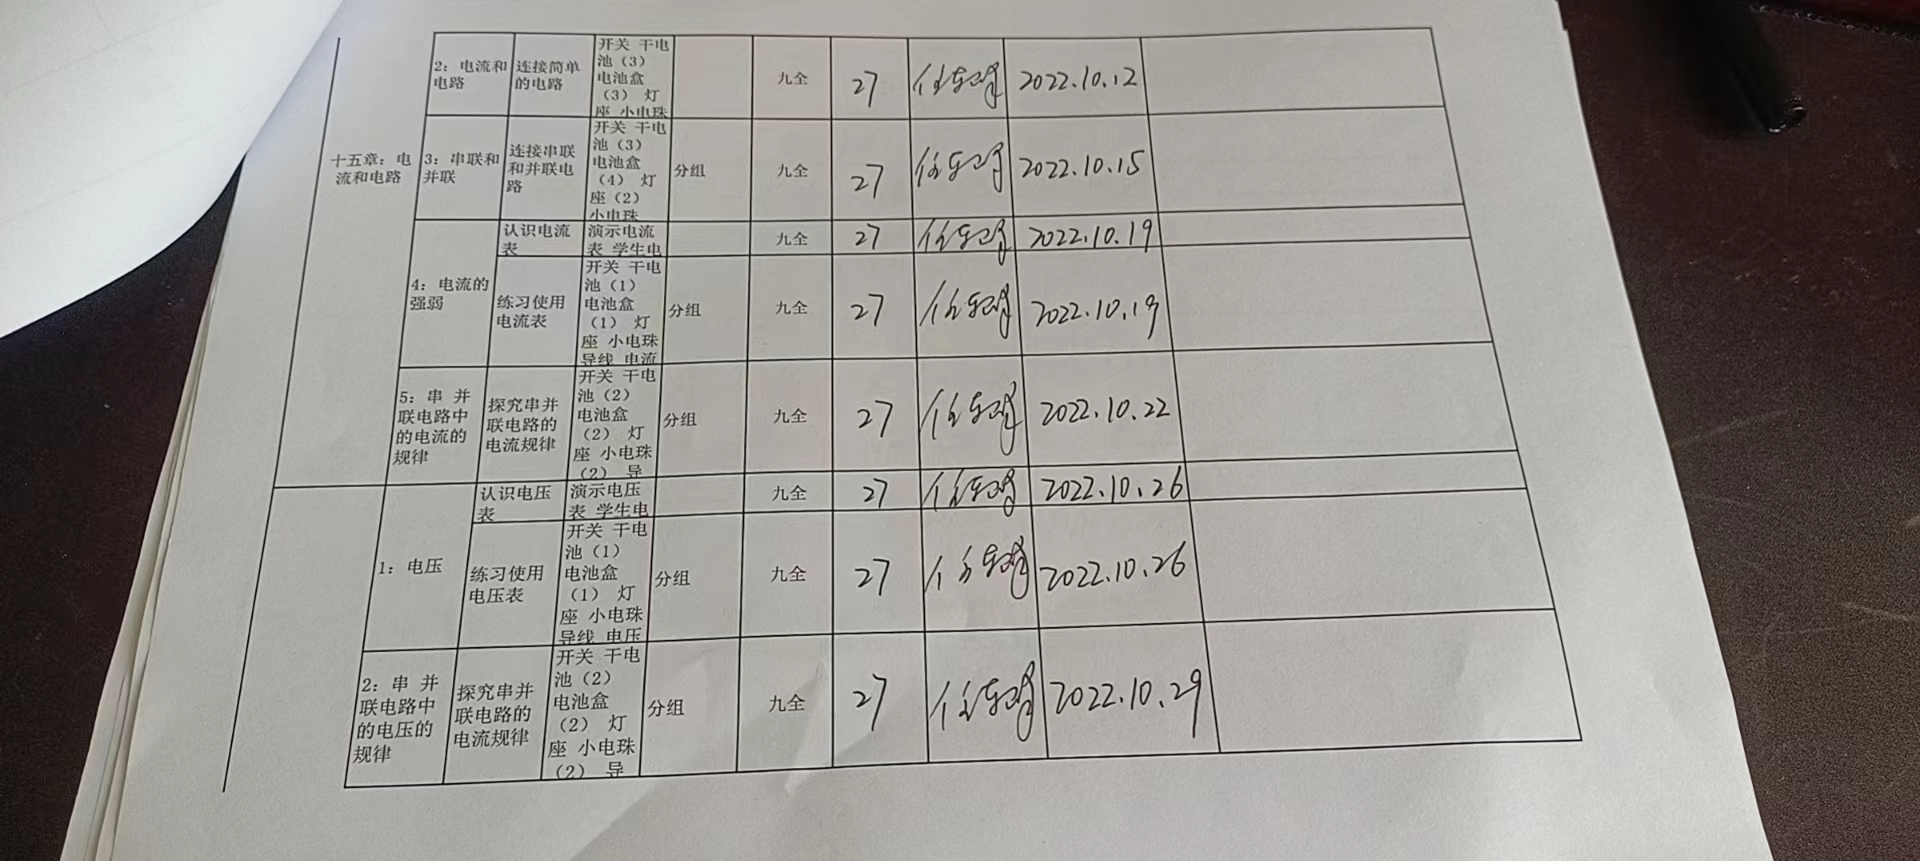 十五章：电
流和电路
2：电流和
电路
连接简单
的电路
开关 干电
池（3）
电池盒
（3） 灯
座 小电珠
九全
27
2022.10.12
3：串联和
并联
连接串联
和并联电
路
开关 干电
池（3）
电池盒
（4） 灯
座（2）
小电珠
分组
九全
27
2022.10.15
4：电流的
强弱
认识电流
表
演示电流
表 学生电
九全
27
2022.10.19
练习使用
电流表
开关 干电
池（1）
电池盒
（1） 灯
座 小电珠
导线 电流
分组
九全
27
2022.10.19
5：串 并
联电路中
的电流的
规律
探究串并
联电路的
电流规律
开关 干电
池（2）
电池盒
（2） 灯
座 小电珠
（2） 导
分组
九全
27
2022.10.22
1：电压
认识电压
表
演示电压
表 学生电
九全
27
2022.10.26
练习使用
电压表
开关 干电
池（1）
电池盒
（1） 灯
座 小电珠
导线 电压
分组
九全
27
2022.10.26
2：串 并
联电路中
的电压的
规律
探究串并
联电路的
电流规律
开关 干电
池（2）
电池盒
（2） 灯
座 小电珠
（2） 导
分组
九全
27
2022.10.29